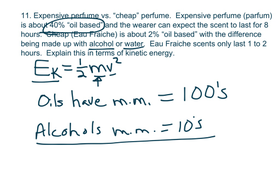 11. Expensive perfume vs. "cheap" perfume. Expensive perfume (parfum)
is about 40% "oil based" and the wearer can expect the scent to last for 8
hours. Cheap (Eau Fraiche) is about 2% "oil based" with the difference
being made up with alcohol or water. Eau Fraiche scents only last 1 to 2
hours. Explain this in terms of kinetic energy.
E_K = 1/2 mv²
Oils have m.m. = 100's
Alcohols m.m. = 10's